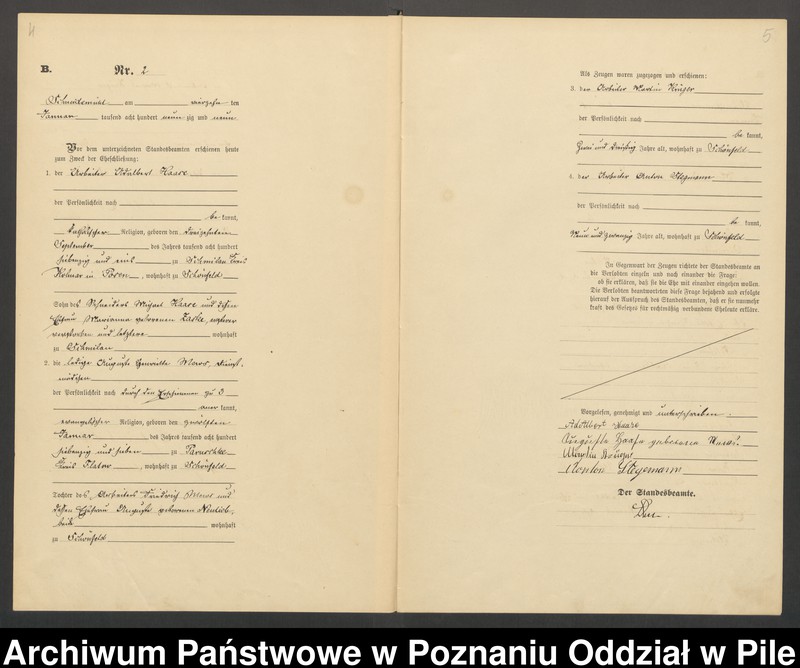 4
B. Nr. 2
Schneidemühl am vierzehn ten
Januar tausend acht hundert neun zig und neun
Vor dem unterzeichneten Standesbeamten erschienen heute
zum Zweck der Eheschließung:
1. der Arbeiter Adalbert Haase
der Persönlichkeit nach
be kannt,
katholischer Religion, geboren den dreizehnten
September des Jahres tausend acht hundert
siebenzig und zu Schmilau Kreis
Kolmar in Posen, wohnhaft zu Schönfeld
Sohn des Schneiders Michael Haase und dessen
Ehefrau Marianna geborenen ersterer
verstorben und letztere wohnhaft
zu Schmilau
2. die ledige Auguste Henriette Mews, Dienst-
mädchen
der Persönlichkeit nach durch den Erschienenen zu 3
aner kannt,
evangelischer Religion, geboren den zwölften
Januar des Jahres tausend acht hundert
siebenzig und sieben zu Tarnowke
Kreis Flatow, wohnhaft zu Schönfeld
Tochter des Arbeiters Friedrich Mews und
dessen Ehefrau Auguste geborenen
wohnhaft
zu Schönfeld
5
Als Zeugen waren zugezogen und erschienen:
3. der Arbeiter Martin Krüger
der Persönlichkeit nach
be kannt,
zwei und dreißig Jahre alt, wohnhaft zu Schönfeld
4. der Arbeiter Anton Stegmann
der Persönlichkeit nach
be kannt,
neun und zwanzig Jahre alt, wohnhaft zu Schönfeld
In Gegenwart der Zeugen richtete der Standesbeamte an
die Verlobten einzeln und nach einander die Frage:
ob sie erklären, daß sie die Ehe mit einander eingehen wollen.
Die Verlobten beantworteten diese Frage bejahend und erfolgte
hierauf der Ausspruch des Standesbeamten, daß er sie nunmehr
kraft des Gesetzes für rechtmäßig verbundene Eheleute erkläre.
Vorgelesen, genehmigt und unterschrieben:
Adalbert Haase
Auguste Haase geborene Mews
Martin Krüger
Anton Stegemann
Der Standesbeamte.
Archiwum Państwowe w Poznaniu Oddział w Pile